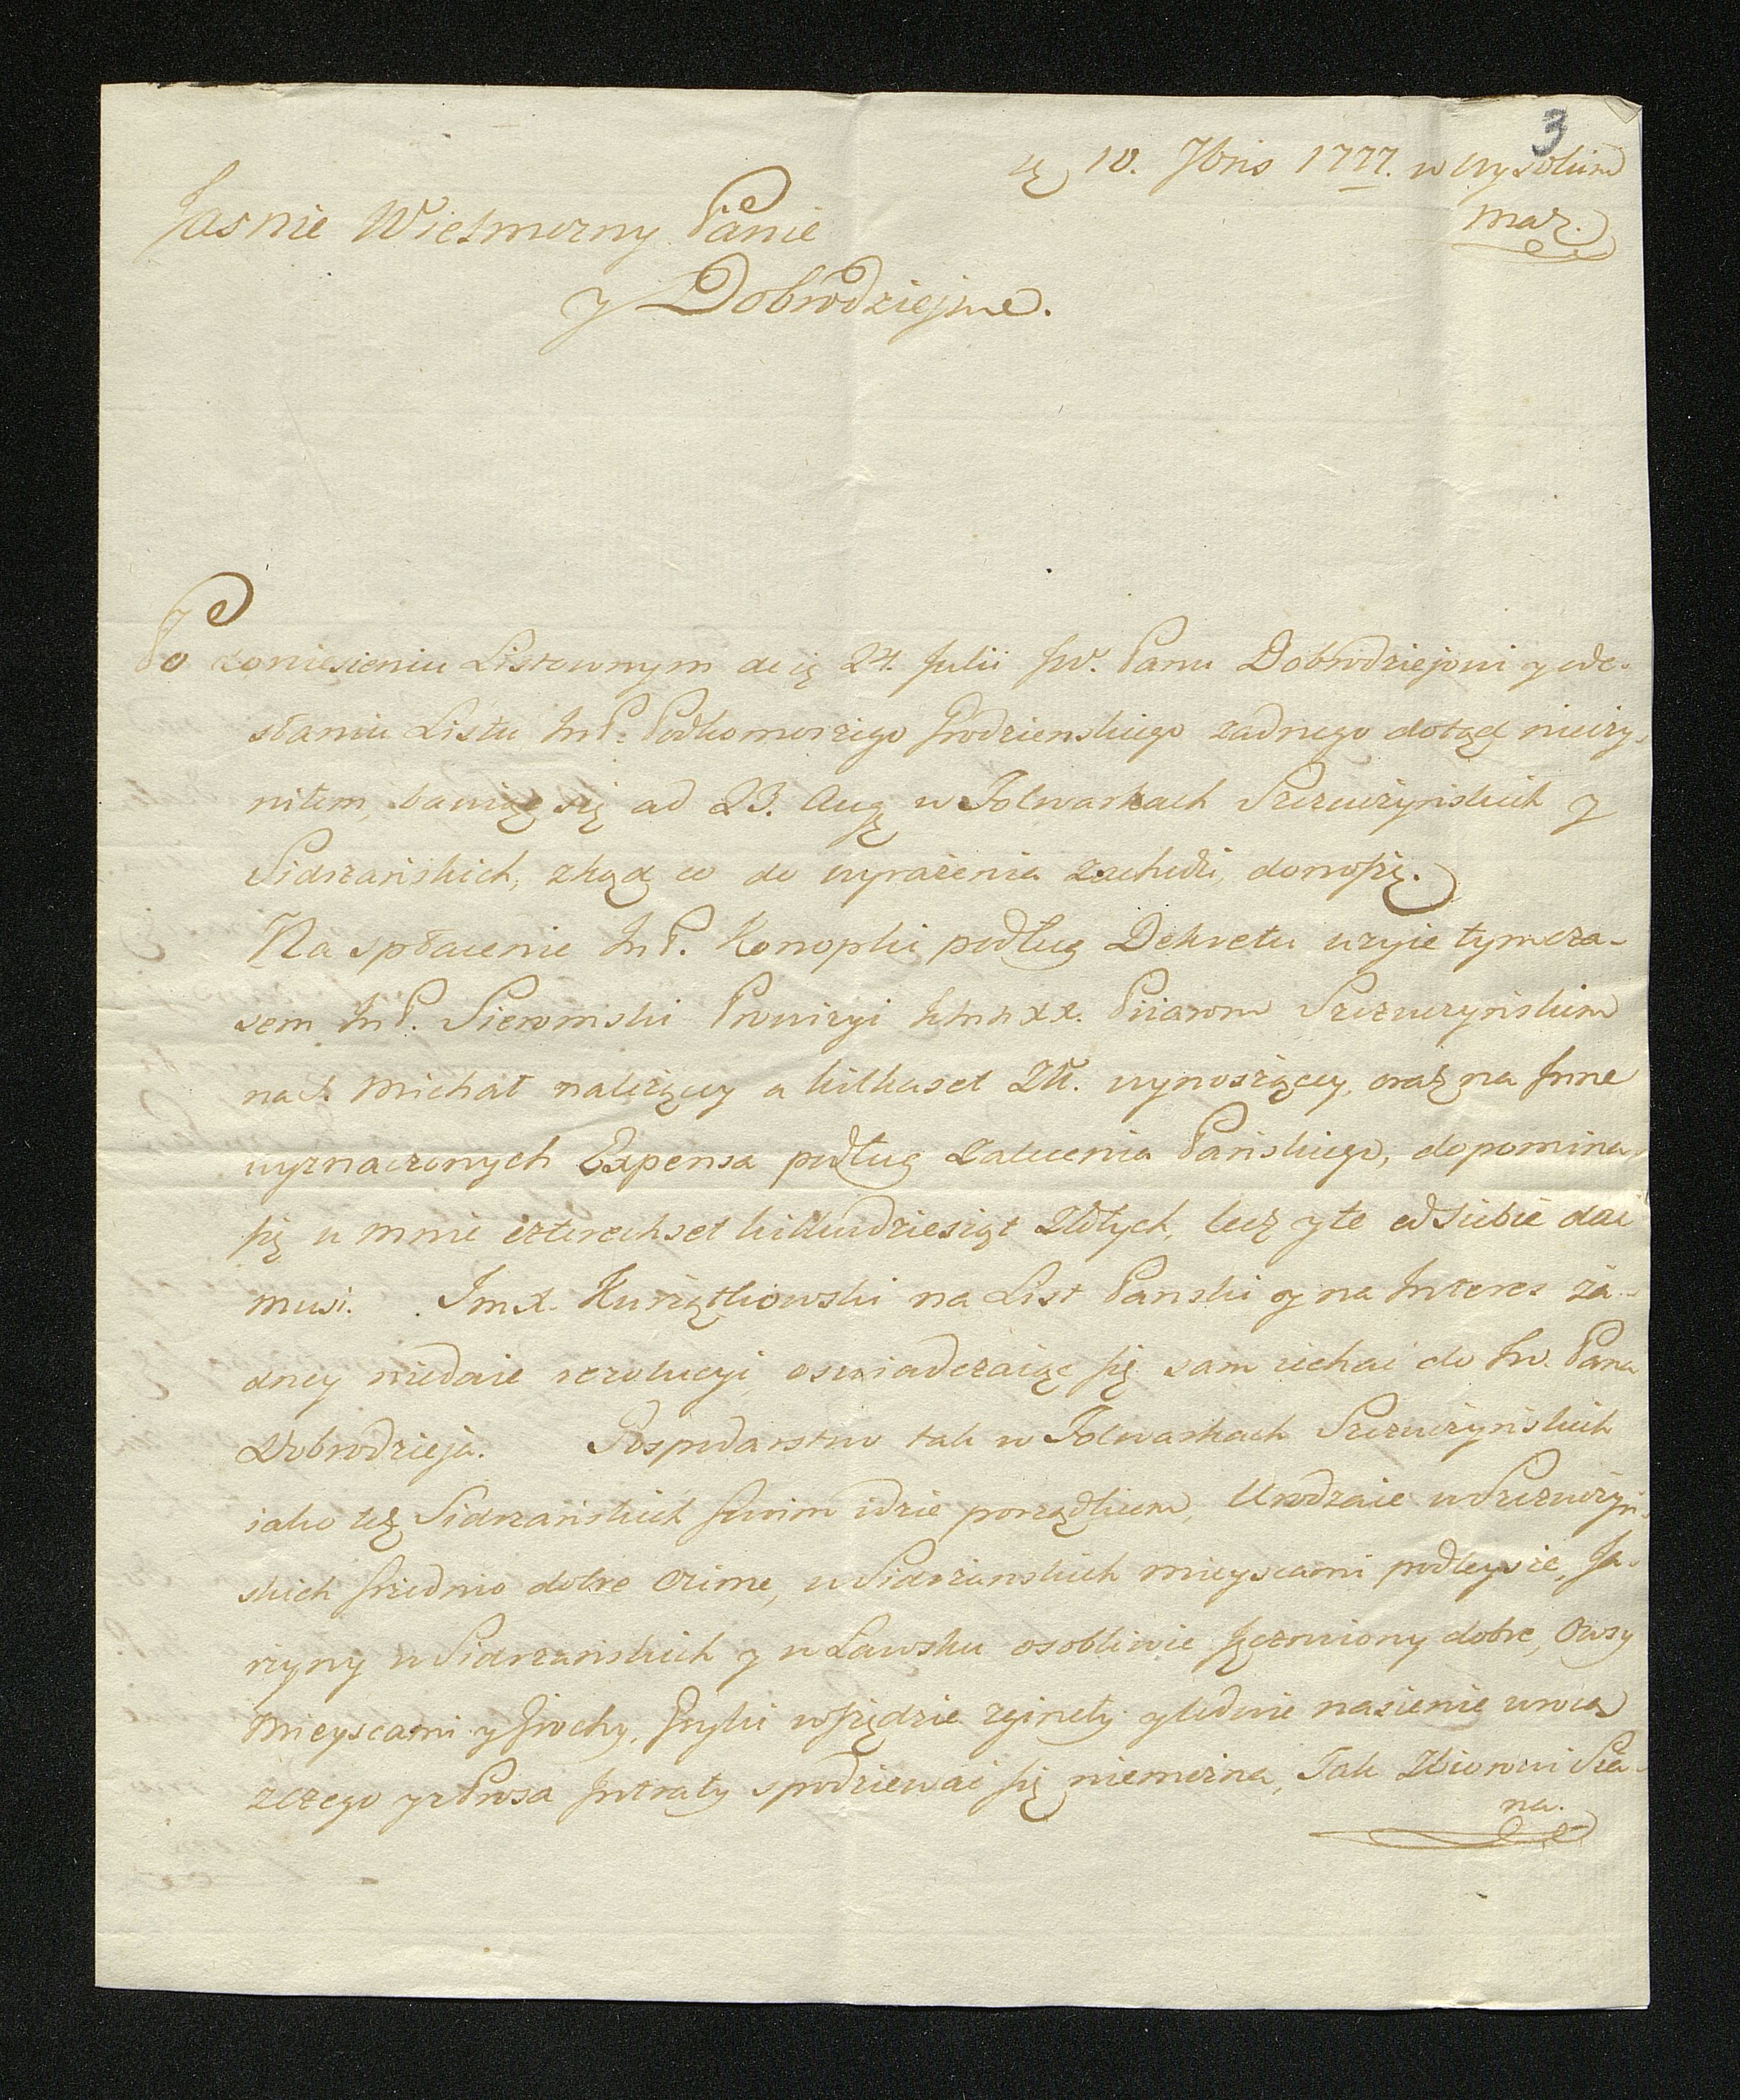 3
10. 7bris 1777. w Wysokim
Maz.
Jasnie Wielmozny Panie
y Dobrodzieju.
Po doniesieniu Listownym de 24. Julii JW. Panu Dobrodziejowi y ode-
słaniu Listu JmP. Podkomorzego Grodzienskiego zadnego dotąd nieczy-
niłem, bawiąc się ad 23. Aug w Folwarkach Szczuczyńskich y
Sidrzańskich, zkąd co do wyrażenia zachodzi donoszę.
Na spłacenie JmP. Konopki podług Dekretu uzyie tymcza-
sem JmP. Prowizyi XX. Piiarom Szczuczyńskim
na S. Michał należącey a kilkaset Złł. wynoszącey, oraz na Jnne
wyznaczonych Expensa podług Zalecenia Pańskiego, dopomina
się u mnie czterechset kilkudziesiąt Złłtych, lecz y te od siebie dac
musi. Jmx. Kurzątkowski na List Panski y na Jnteres ża-
dney niedaie rezolucyi oswiadczaiąc się sam iechać do JW. Pana
Dobrodzieja. Gospodarstwo tak w Folwarkach Szczuczyńskich
iako też Sidrzańskich swoim idzie porządkiem, Urodzaie w Szczuczyń-
skich srzednio dobre Ozime, w Sidrzanskich mieyscami podleysze, Ja-
rzyny w Sidrzańskich y w Ławsku osobliwie Jęczmiony dobre, Owsy
Mieyscami y Grochy, Gryki wszędzie zginęły y ledwie nasienie wroca
zczego y z Prosa Jntraty spodziewać się niemożna, Tak Zbiorow Sia-
na.